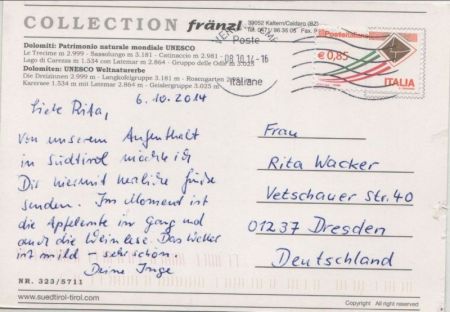 COLLECTION fränzl
39052 Kaltern/Caldaro (BZ)
Dolomiti: Patrimonio naturale mondiale UNESCO
Le Trecime m 2.999 - Sassolungo m 3.181 - Catinaccio m 2.981
Lago di Carezza m 1.534 con Latemar m 2.864 - Gruppo delle Odle m 3.025
Dolomiten: UNESCO Weltnaturerbe
Die Dreizinnen 2.999 m - Langkofelgruppe 3.181 m - Rosengarten
Karersee 1.534 m mit Latemar 2.864 m - Geislergruppe 3.025 m
Poste
08.10.14-16
Italiane
Posteitaliane
€ 0,85
ITALIA
6.10.2014
Liebe Rita,
Von unserem Aufenthalt
in Südtirol möchte ich
Dir hiermit herzliche Grüße
senden. Im Moment ist
die Apfelernte im Gang und
auch die Weinlese. Das Wetter
ist mild – sehr schön.
Deine Inge
Frau
Rita Wacker
Vetschauer Str. 40
01237 Dresden
Deutschland
NR. 323/5711
www.suedtirol-tirol.com
Copyright All right reserved